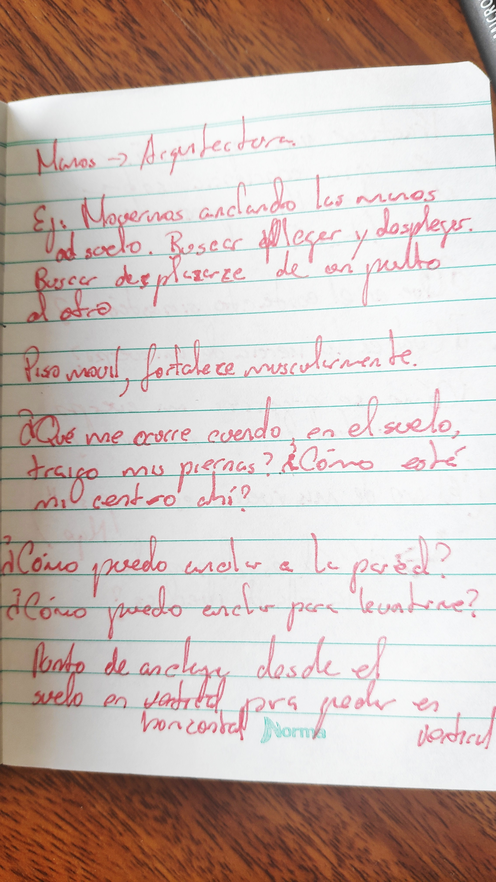 Manos → Arquitectura.
Ej: Movernos anclando las manos
al suelo. Buscar plegar y desplegar.
Buscar desplazarze de un punto
al otro
Piso movil, fortalece muscularmente.
¿Qué me ocurre cuando, en el suelo,
traigo mis piernas? ¿Cómo está
mi centro ahí?
¿Cómo puedo anclar a la pared?
¿Cómo puedo anclar para levantarme?
Punto de anclaje desde el
suelo en para quedar en
horizontal vertical
Norma
MICRO